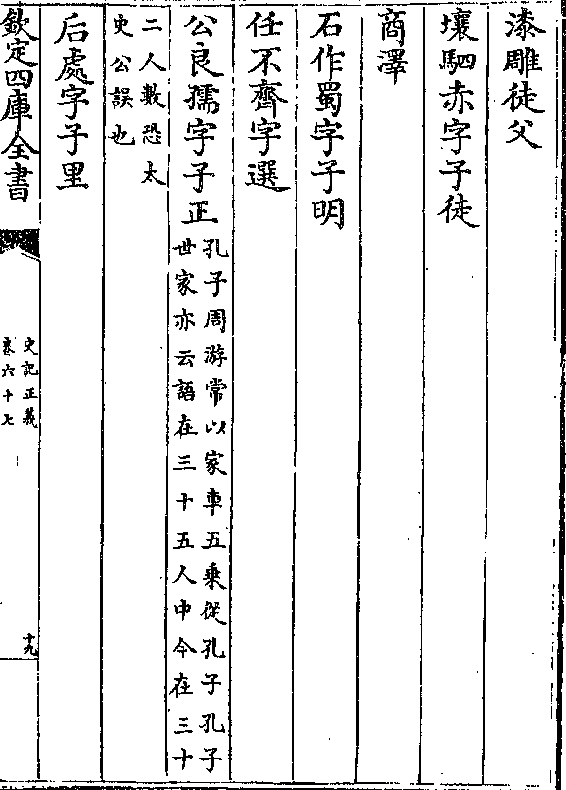 漆雕徒父
壤駟赤字子徒
商澤
石作蜀字子明
任不齊字選
公良孺字子正孔子周游常以家車五乗從孔子孔子
世家亦云語在三十五人中今在三十
二人數恐太
史公誤也
后處字子里
欽定四庫全書
史記正義
卷六十七
十九